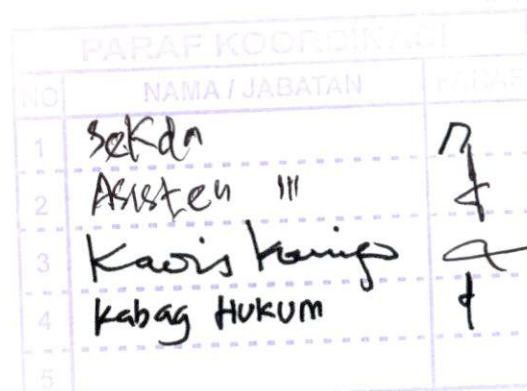 PARAF KOORDINASI
NO NAMA / JABATAN PARAF
1 Sekda
2 Asisten III
3 Kadis
4 Kabag Hukum
5